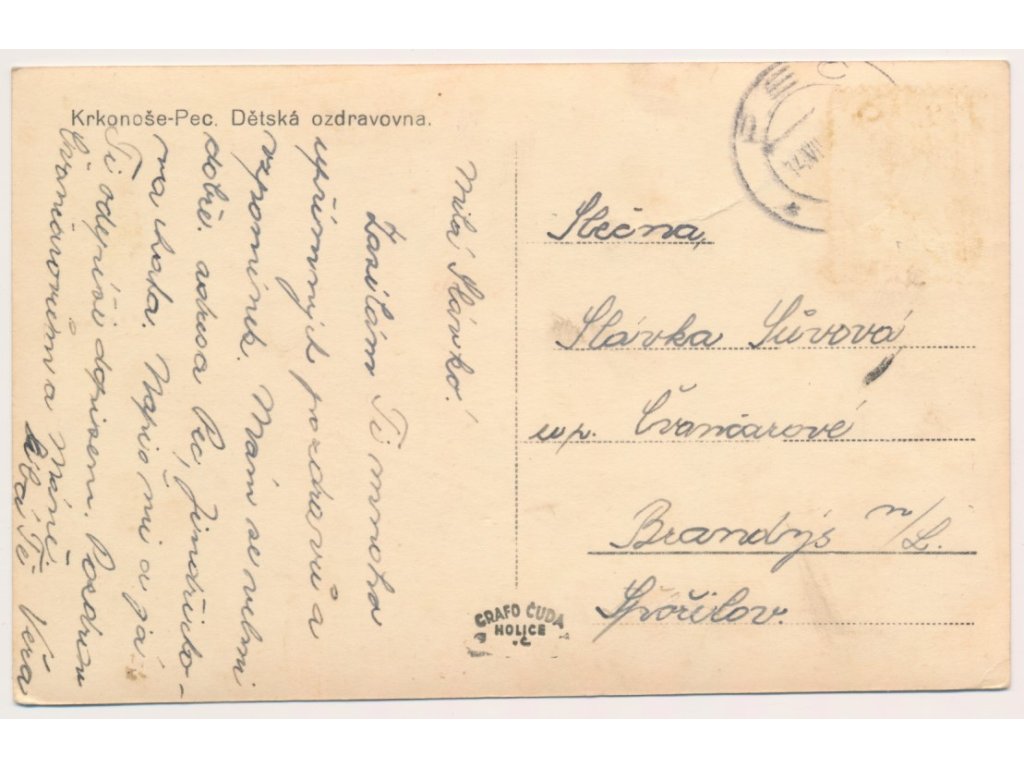 Krkonoše-Pec. Dětská ozdravovna.
Milá Slávko!
Zasílám Ti mnoho
upřímných pozdravů a
vzpomínek. Mám se velmi
dobře. adresa Pec, Jindřicho-
va chata. Napiš mi a já
Ti odepíši dopisem. Pozdrav
Čvančarovým a Máně.
Líbá Tě Věra
PEC
Slečna
Slávka Sůvová
u p. Čvančarové
Brandýs n/L.
Spořilov.
GRAFO ČUDA
HOLICE